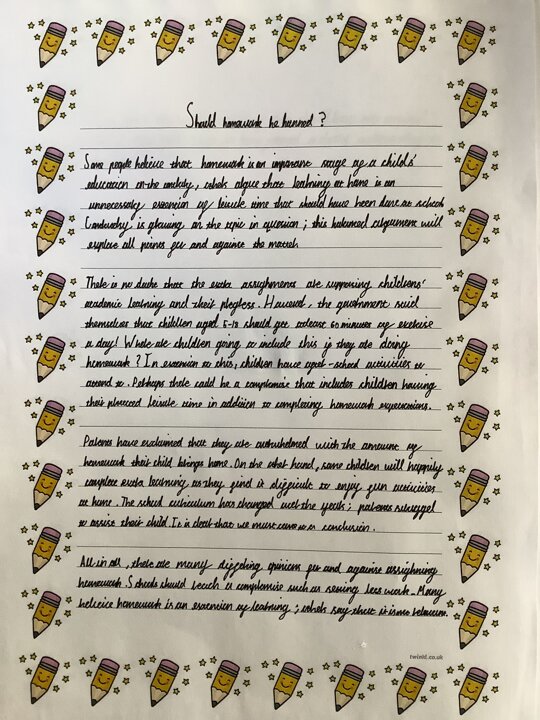 Should homework be banned ?
Some people believe that homework is an important stage of a childs'
education. On the contrary, others argue that learning at home is an
unnecessary extension of leisure time that should have been done at school.
Controversy is growing on the topic in question ; this balanced argument will
explore all points for and against the matter.
There is no doubt that the extra assignments are supporting childrens'
academic learning and their progress. However, the government said
themselves that children aged 5-18 should get atleast 60 minutes of exercise
a day! Where are children going to include this if they are doing
homework ? In extension to this, children have after-school activities to
attend to. Perhaps there could be a compromise that includes children having
their planned leisure time in addition to completing homework expectations.
Parents have exclaimed that they are overwhelmed with the amount of
homework their child brings home. On the other hand, some children will happily
complete extra learning as they find it difficult to enjoy fun activities
at home. The school curriculum has changed over the years ; parents struggle
to assist their child. It is clear that we must come to a conclusion.
All in all, there are many differing opinions for and against assigning
homework. Schools should reach a compromise such as setting less work. Many
believe homework is an extension of learning ; others say that it is no
twinkl.co.uk